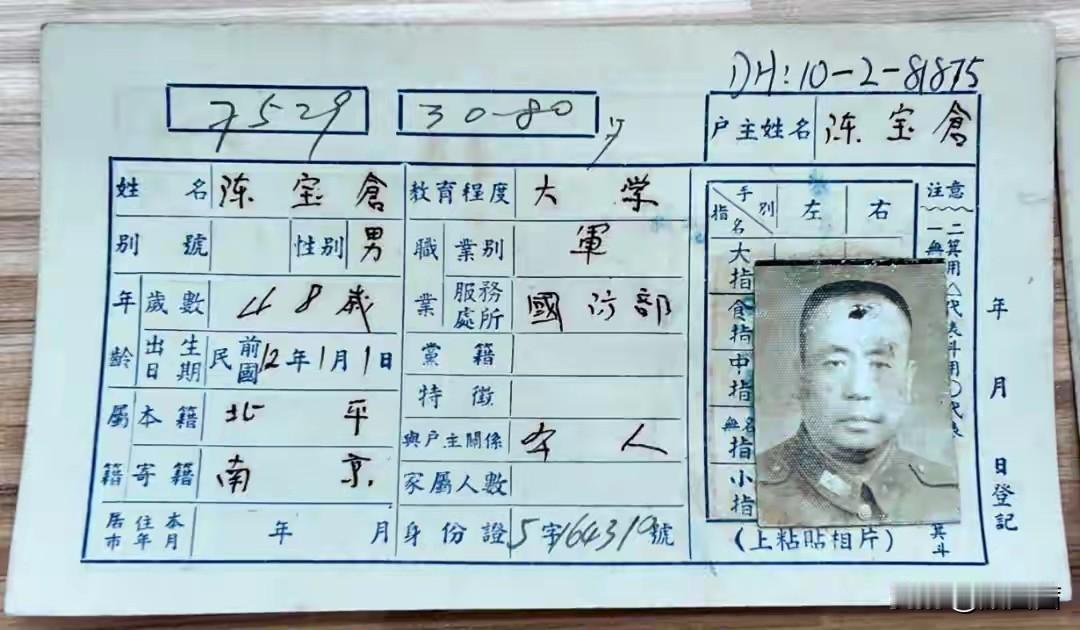 DH:10-2-81875
7529 30-80
户主姓名 陈宝倉
姓名 陈宝倉 教育程度 大学
别號 性别 男 職業 業别 軍
年齡 歲數 48歲 服務處所 國防部
出生日期 民國前12年1月1日 黨籍
特徵
屬籍 本籍 北平 與户主關係 本人
寄籍 南京 家屬人數
居住本市年月 年 月 身份證 5字164319號
手别 指名 左 右
大指
食指
中指
無名指
小指
(上粘貼相片)
注意
一無
二箕用△代表斗用〇代表
箕斗
年 月 日登記